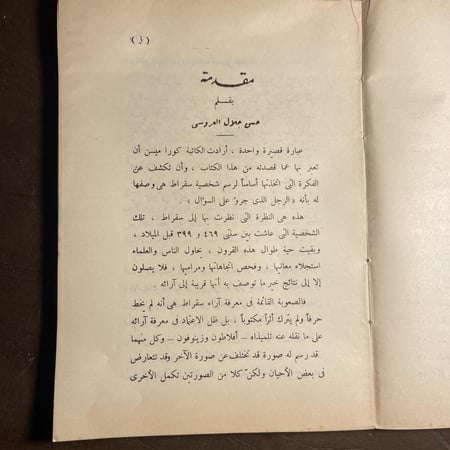 ( ز )
مقدمة
بقلم
حسن جلال العروسى
عبارة قصيرة واحدة ، أرادت الكاتبة كورا ميسن أن
تعبر بها عما قصدته من هذا الكتاب ، وأن تكشف عن
الفكرة التى اتخذتها أساساً لرسم شخصية سقراط هى وصفها
له بأنه « الرجل الذى جرؤ على السؤال » .
هذه هى النظرة التى نظرت بها إلى سقراط ، تلك
الشخصية التى عاشت بين سنتى ٤٦٩ و ٣٩٩ قبل الميلاد ،
وبقيت حية طوال هذه القرون ، يحاول الناس والعلماء
استجلاء معانيها ، وفحص اتجاهاتها ومراميها ، فلا يصلون
إلا إلى نتائج خير ما توصف به أنها قريبة إلى آرائه .
فالصعوبة القائمة فى معرفة آراء سقراط هى أنه لم يخط
حرفاً ولم يترك أثراً مكتوباً ، بل ظل الاعتماد فى معرفة آرائه
على ما نقله عنه تلميذاه – أفلاطون وزينوفون – وكل منهما
قد رسم له صورة قد تختلف عن صورة الآخر وقد تتعارض
فى بعض الأحيان ولكن كلا من الصورتين تكمل الأخرى